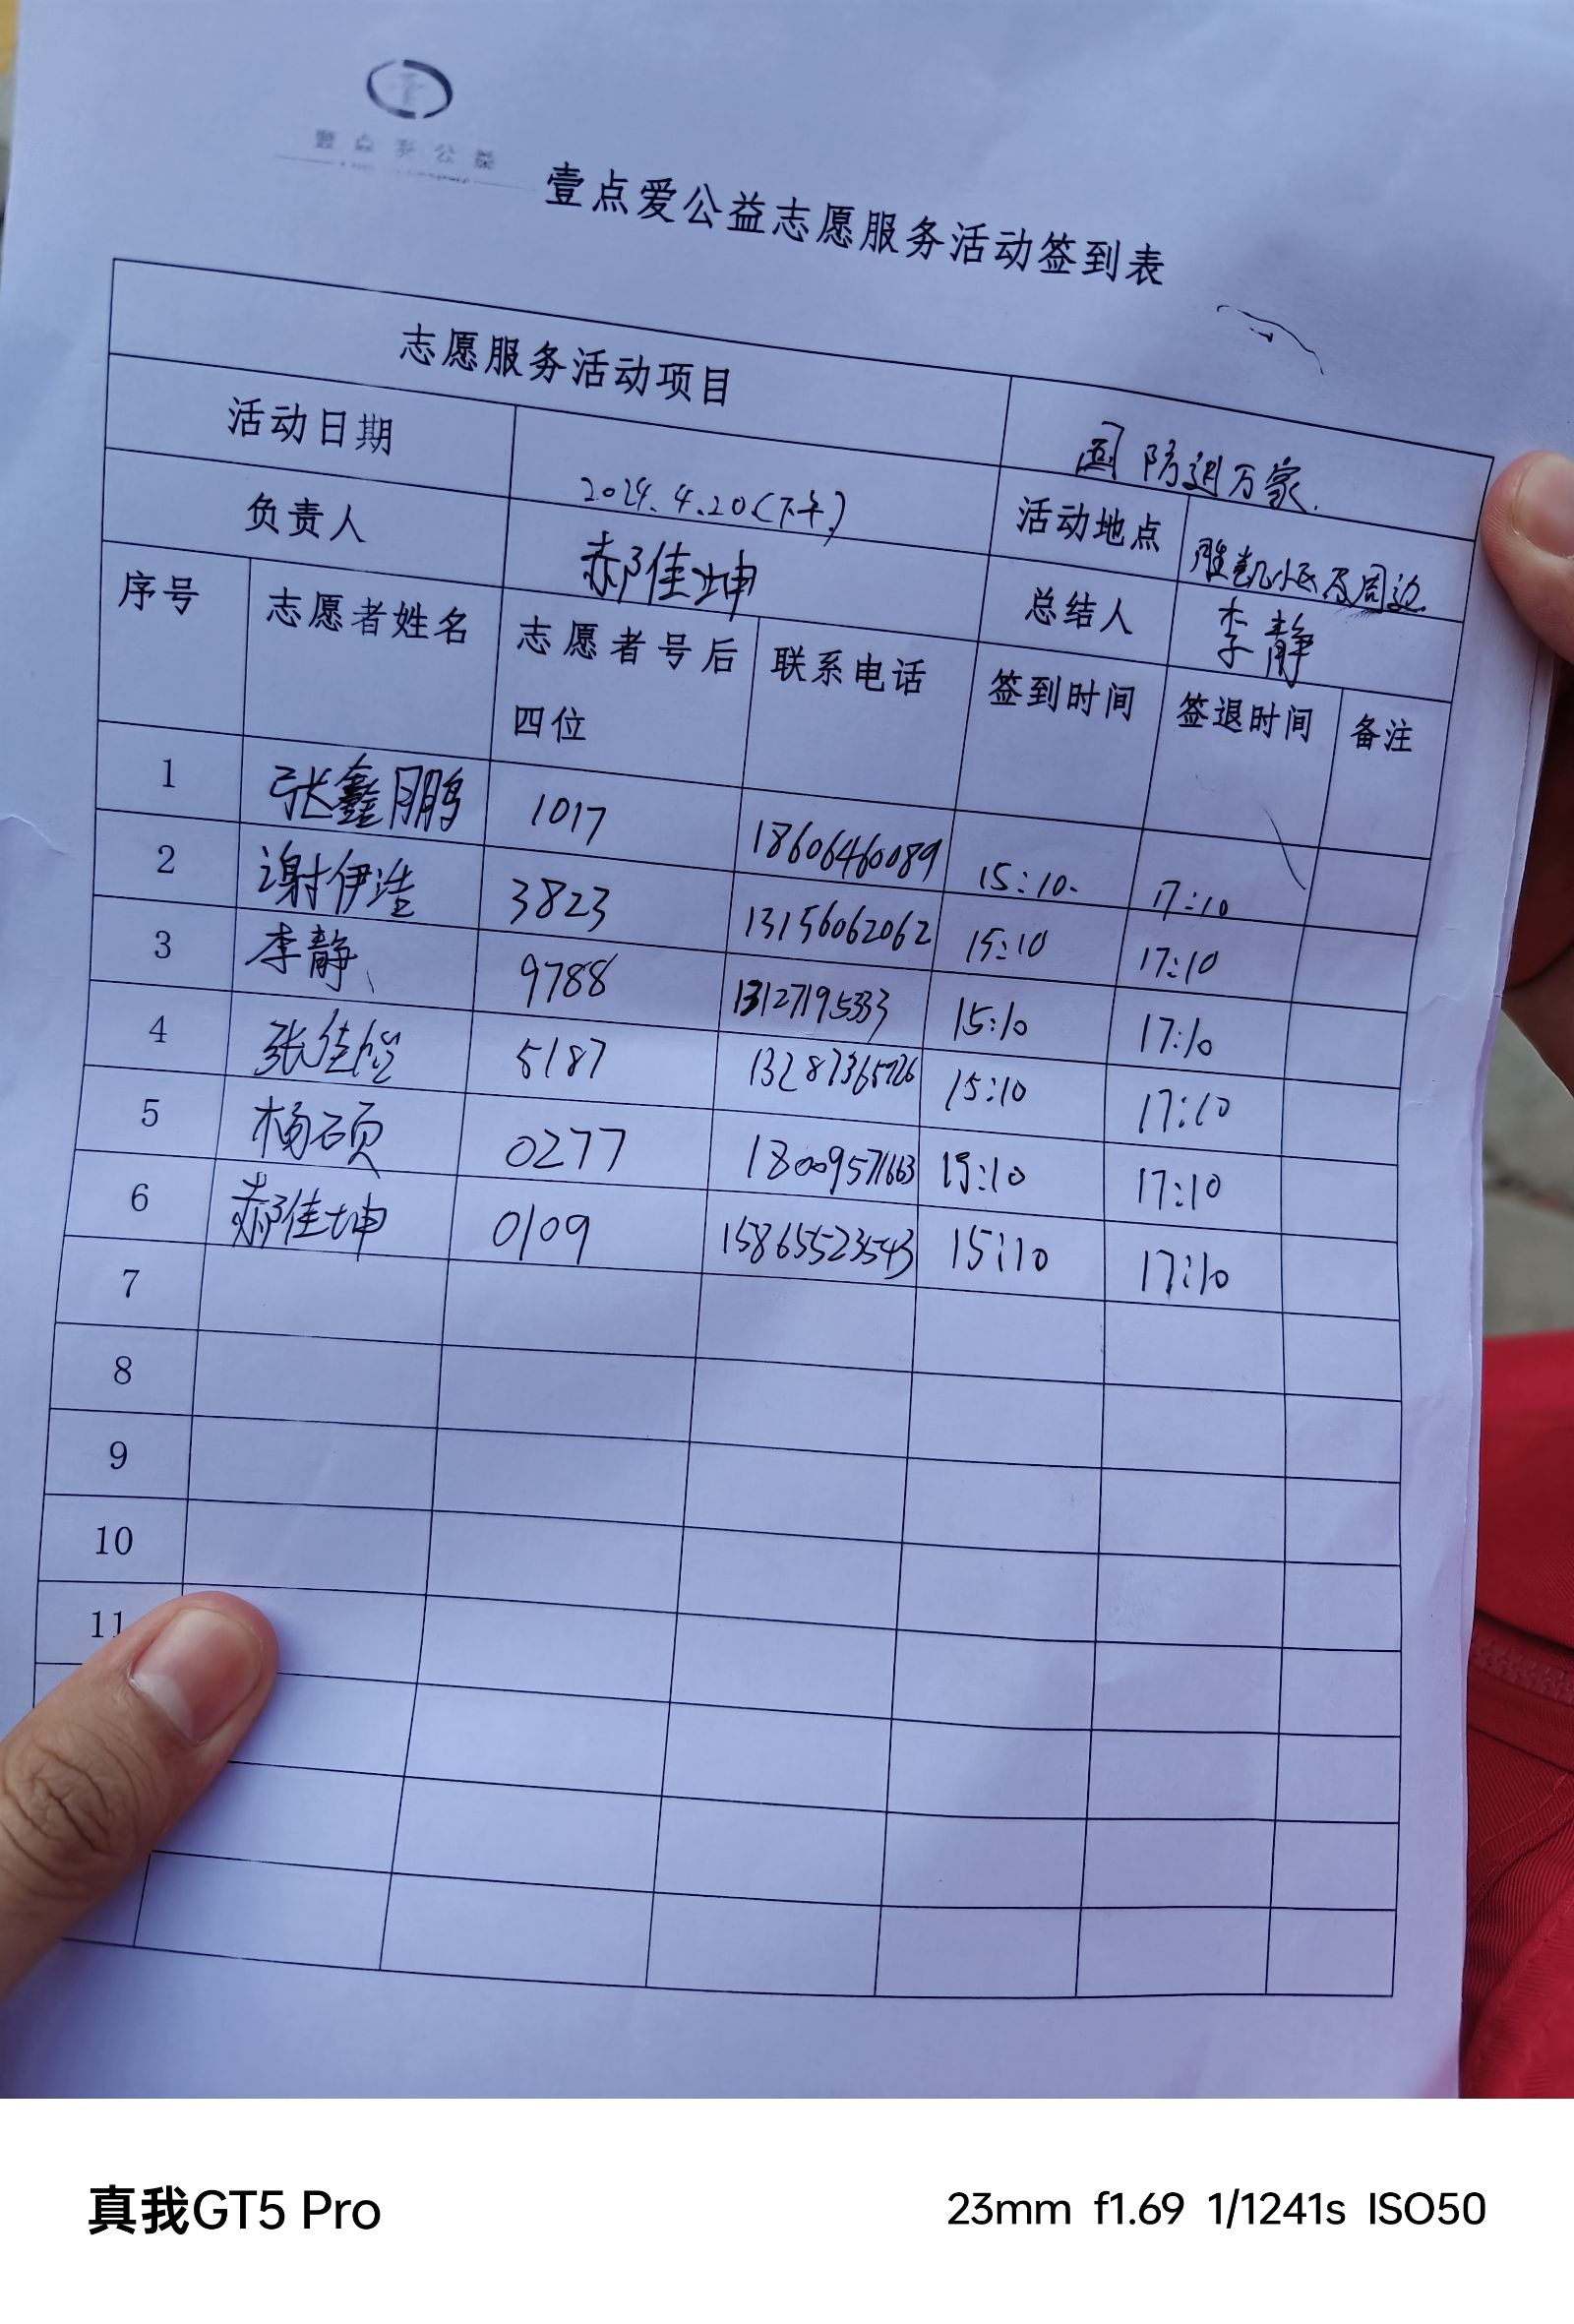 壹点爱公益
壹点爱公益志愿服务活动签到表
志愿服务活动项目 国防进万家.
活动日期 2024.4.20(下午) 活动地点 胜凯小区及周边
负责人 郝佳坤 总结人 李静
序号 志愿者姓名 志愿者号后四位 联系电话 签到时间 签退时间 备注
1 张鑫鹏 1017 18606460089 15:10 17:10
2 谢伊 3823 13156062062 15:10 17:10
3 李静、 9788 13127195333 15:10 17:10
4 张佳 5187 15:10 17:10
5 杨硕 0277 18009571663 15:10 17:10
6 郝佳坤 0109 15865523543 15:10 17:10
7
8
9
10
11
真我GT5 Pro 23mm f1.69 1/1241s ISO50